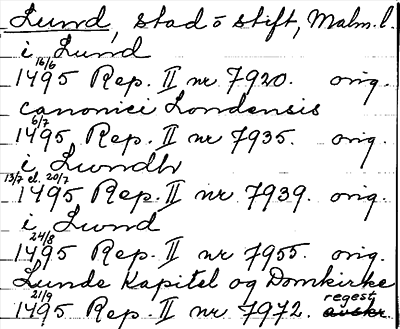 Lund, stad o stift, Malm. l.
i Lund
16/6
1495 Rep. II nr 7920. orig.
canonici Londensis
6/7
1495 Rep. II nr 7935. orig.
i Lundh
13/7 el. 20/7
1495 Rep. II nr 7939. orig.
i Lund
24/8
1495 Rep. II nr 7955. orig.
Lunde Kapitel og Domkirke
21/9 regest
1495 Rep. II nr 7972. avskr.